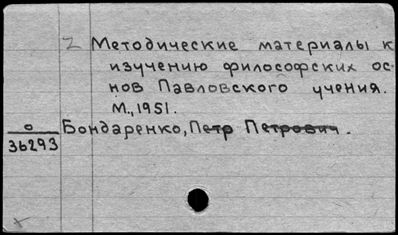 Z Методические материалы к
изучению философских ос
нов Павловского учения.
М., 1951.
о Бондаренко, Петр Петрович.
36293